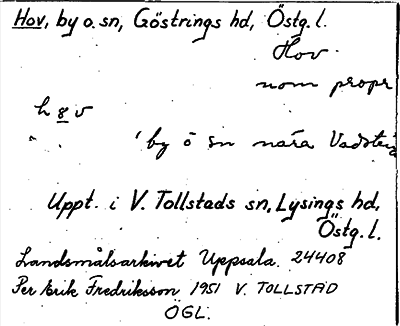 Hov, by o. sn, Göstrings hd, Östg. l.
Hov
nom propr
h 8 v
' by ö sn nära Vadstena
Uppt. i V. Tollstads sn, Lysings hd,
Östg. l.
Landsmålsarkivet Uppsala. 24408
Per Erik Fredriksson 1951 V. TOLLSTAD
ÖGL.